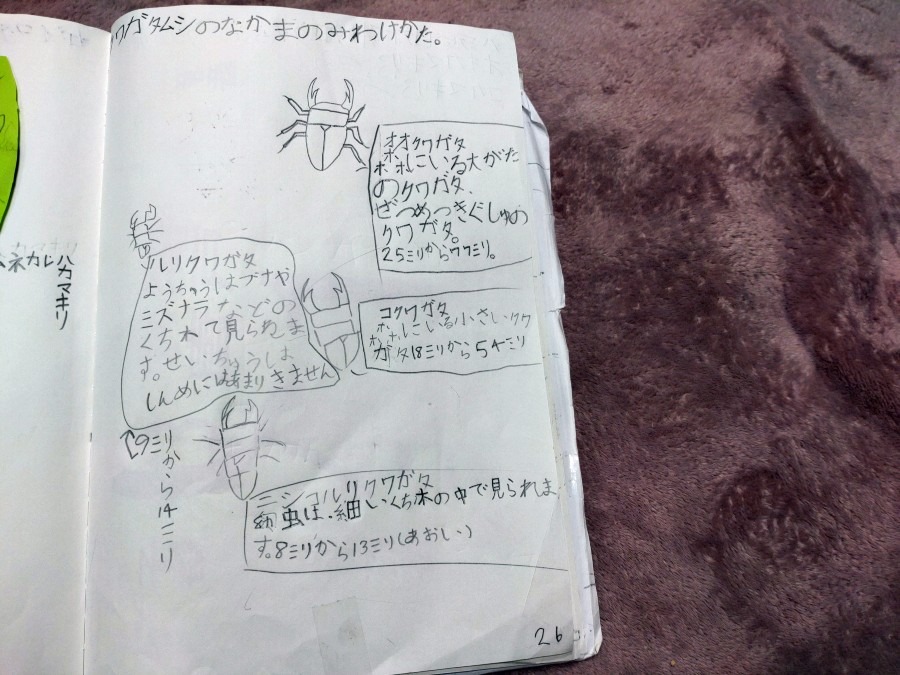 クワガタムシのなかまのみわけかた。
オオクワガタ
ホホにいる大がた
のクワガタ、
ぜつめつきぐしゅの
クワガタ。
25ミリから77ミリ。
ルリクワガタ
ようちゅうはブナや
ミズナラなどの
くちれて見られま
す。せいちゅうしょ
しんめには集まりきません
9ミリから14ミリ
コクワガタ
にいる小さいクワ
ガタ18ミリから54ミリ
ニシコルリクワガタ
幼虫は、細いくち木の中で見られま
す。8ミリから13ミリ(あおい)
ハカマキリ
ネカレ
26